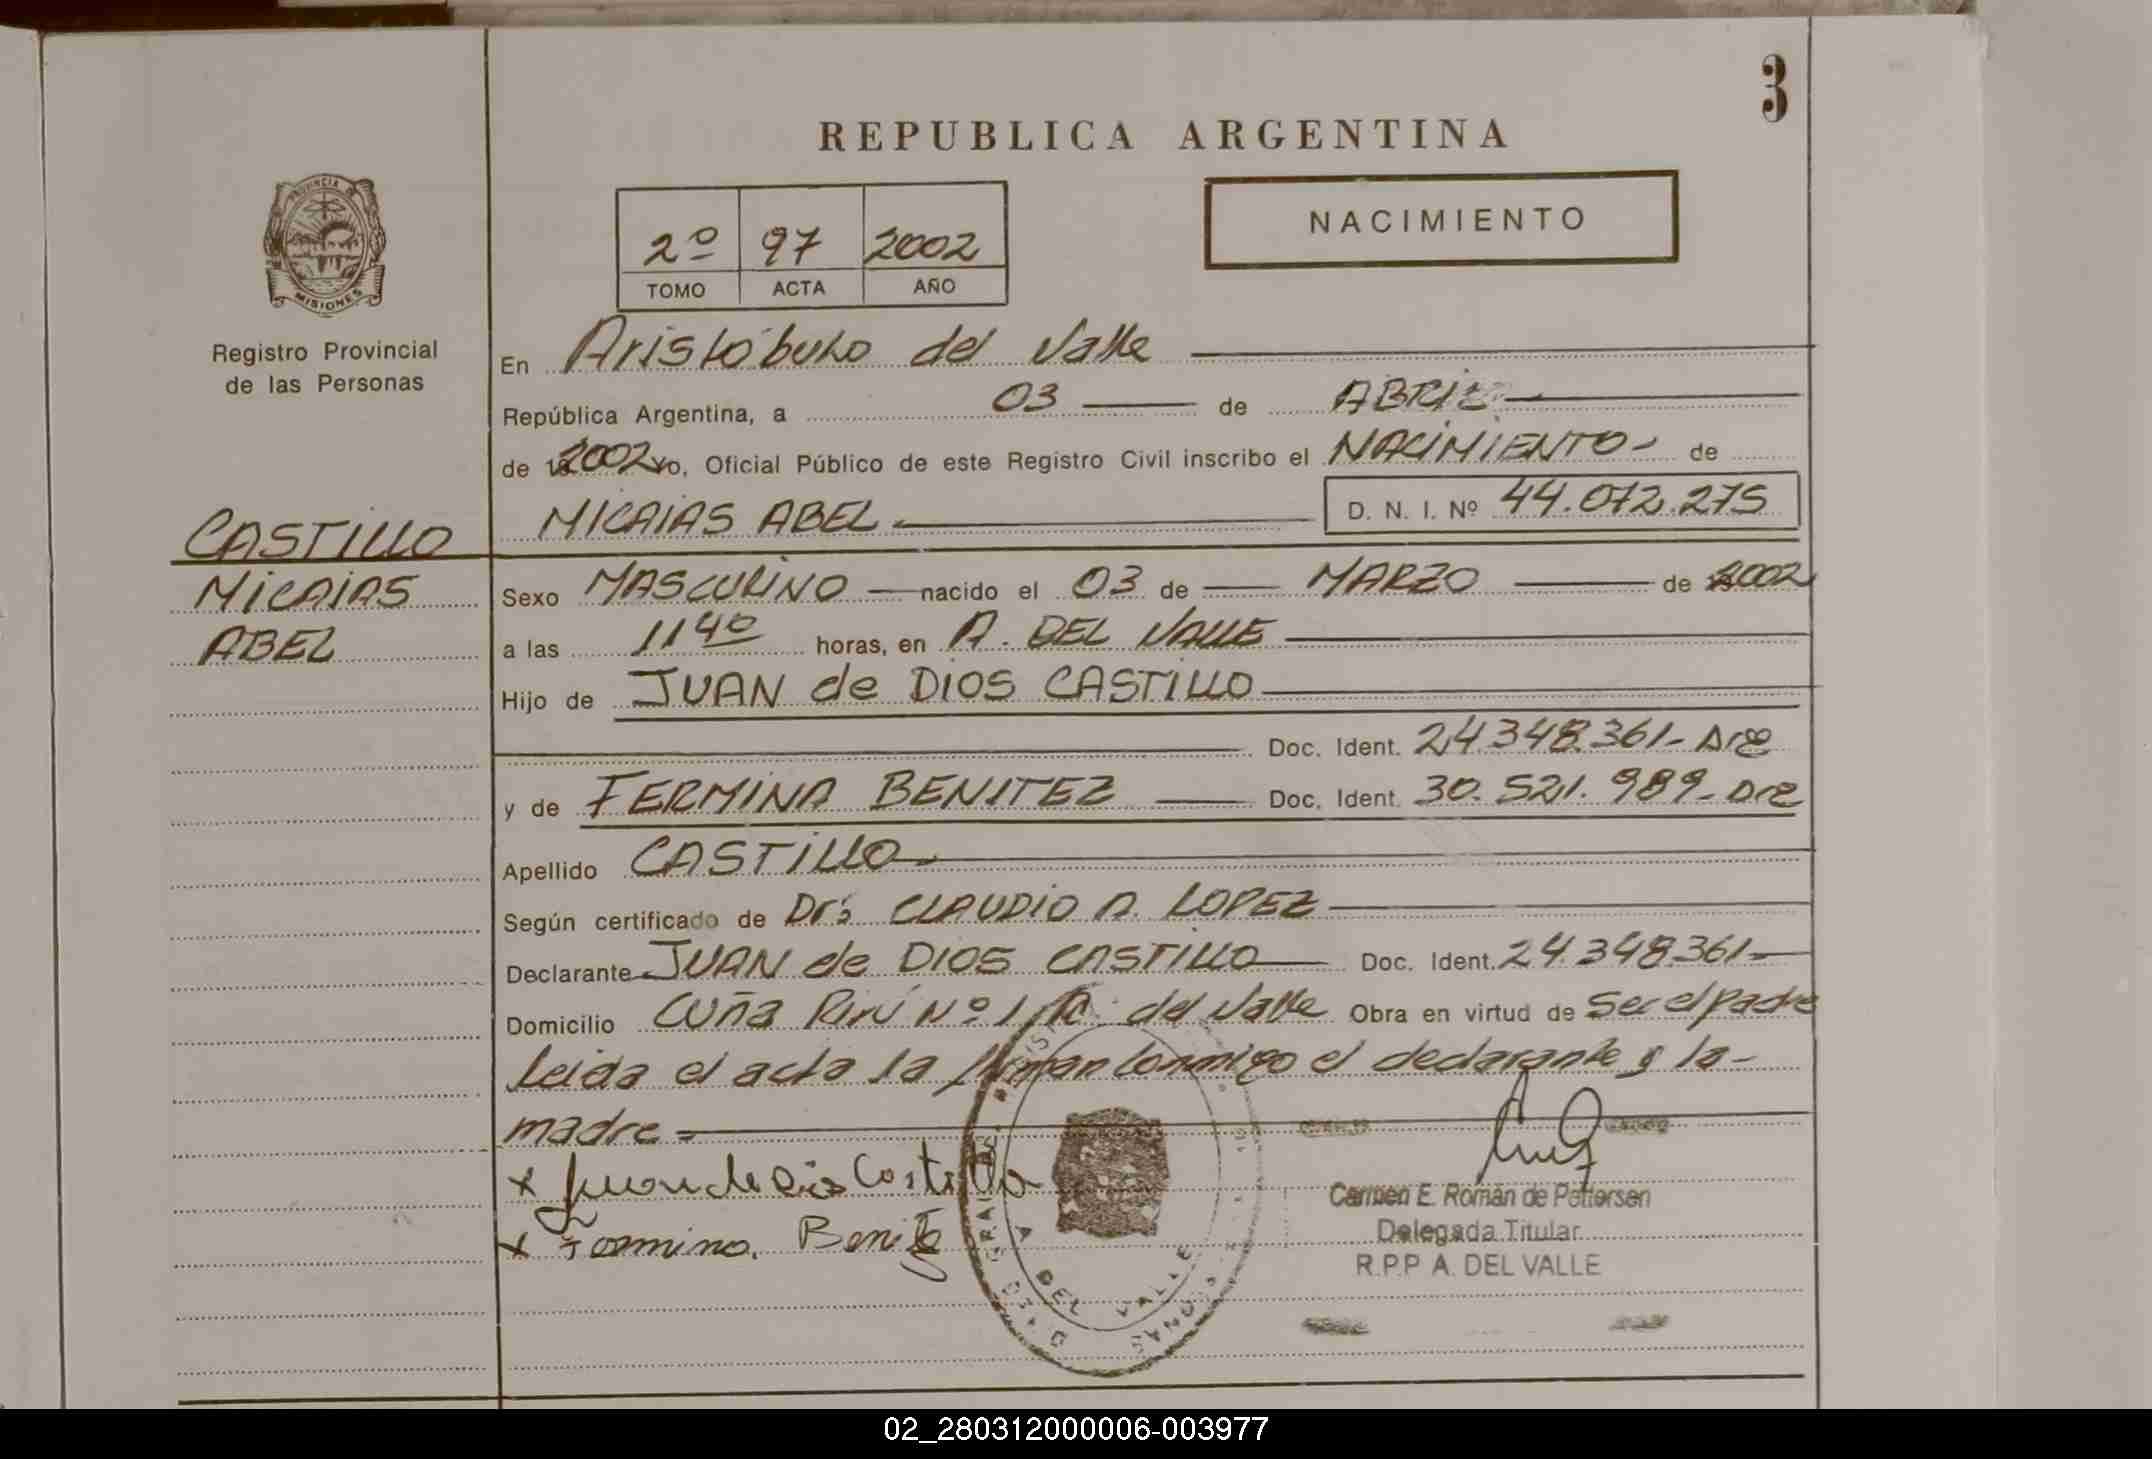 3
REPUBLICA ARGENTINA
PROVINCIA DE
MISIONES
2º 97 2002
TOMO ACTA AÑO
NACIMIENTO
Registro Provincial
de las Personas
En Aristóbulo del Valle
República Argentina, a 03 de ABRIL
de 2002 yo, Oficial Público de este Registro Civil inscribo el NACIMIENTO - de
MICAIAS ABEL D. N. I. Nº 44.072.275
CASTILLO
MICAIAS
ABEL
Sexo MASCULINO nacido el 03 de MARZO de 2002
a las 11 40 horas, en A. DEL VALLE
Hijo de JUAN de DIOS CASTILLO
Doc. Ident. 24.348.361-
y de FERMINA BENITEZ Doc. Ident. 30.521.989-
Apellido CASTILLO
Según certificado de Dr. CLAUDIO A. LOPEZ
Declarante JUAN de DIOS CASTILLO Doc. Ident. 24.348.361-
Domicilio Cuña Pirú Nº 1 A. del Valle Obra en virtud de Ser el padre
Leida el acta la firman conmigo el declarante y la-
madre
x Juan de Dios Castillo
x Fermina. Benitez
A DEL VALLE
Carmen E. Román de Pettersen
Delegada Titular
R.P.P A. DEL VALLE
02_280312000006-003977